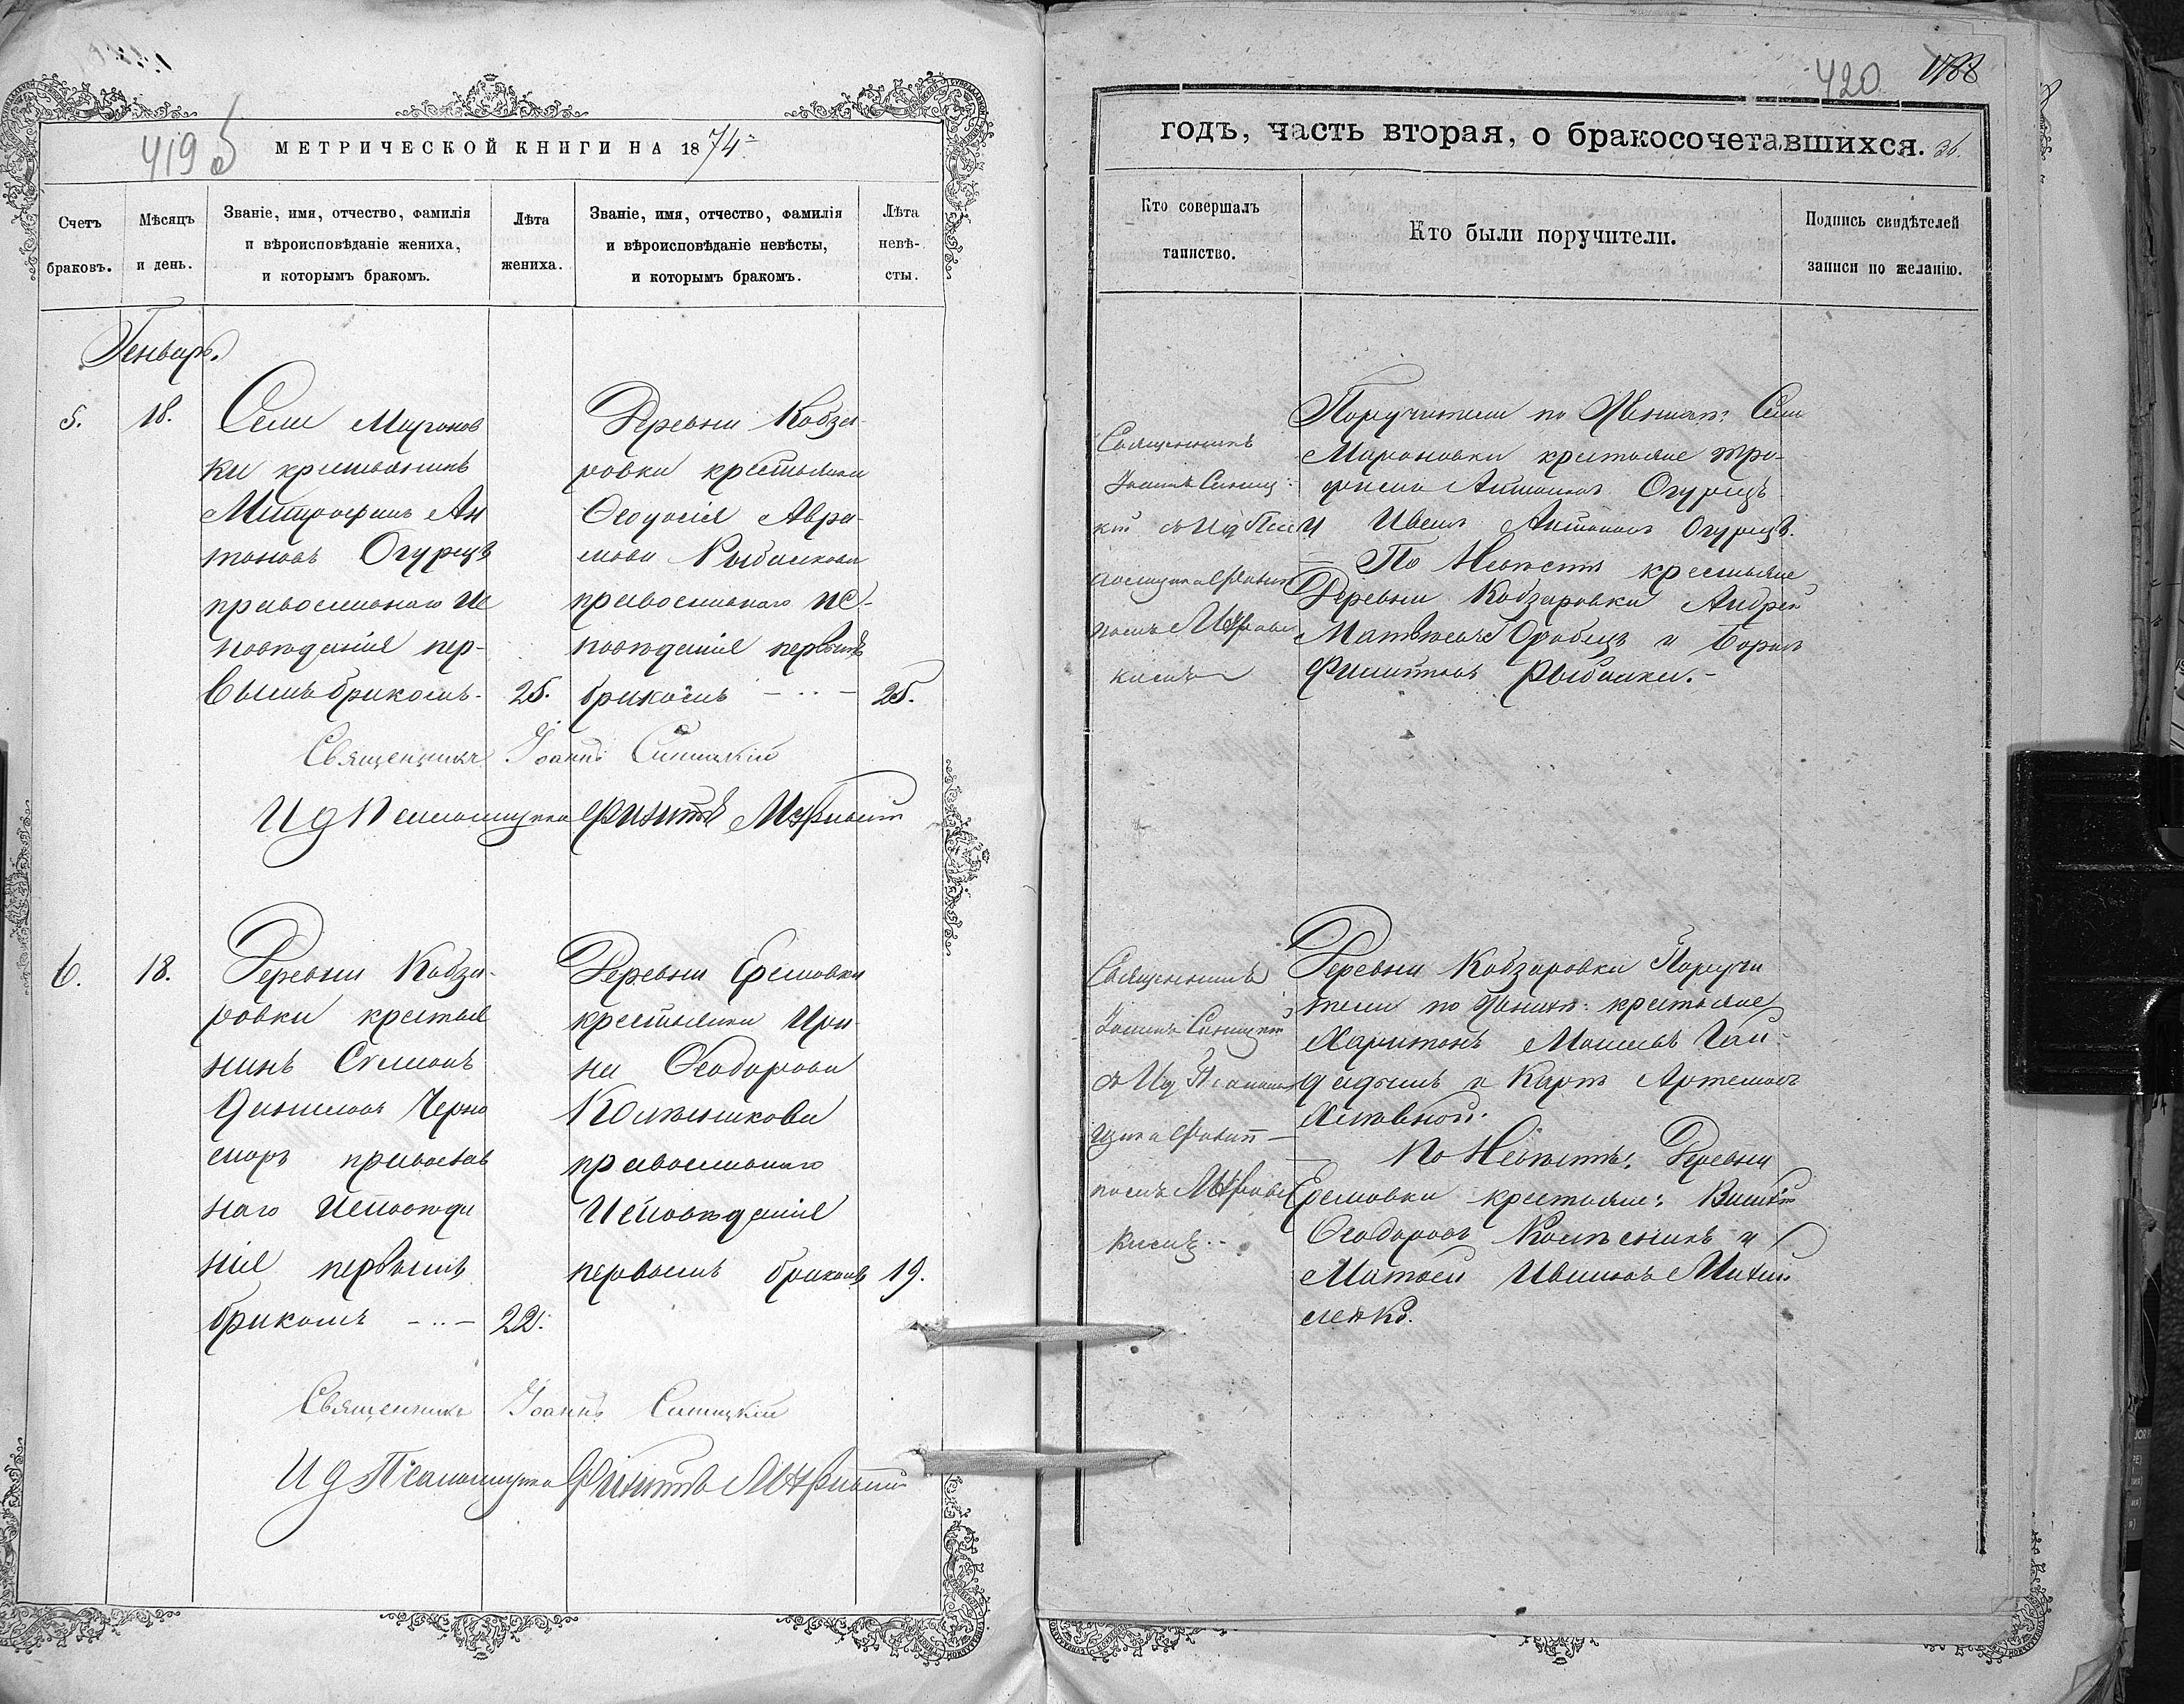 419 б
МЕТРИЧЕСКОЙ КНИГИ НА 1874
Счетъ браковъ.
Мѣсяцъ и день.
Званіе, имя, отчество, фамилія
и вѣроисповѣданіе жениха,
и которымъ бракомъ.
Лѣта жениха.
Званіе, имя, отчество, фамилія
и вѣроисповѣданіе невѣсты,
и которымъ бракомъ.
Лѣта невѣ-
сты.
Генварь.
5.
18.
Села Миронов
ки крестьянинъ
Митрофанъ Ан
тоновъ Огурецъ
православнаго ис
повѣданія пер-
вымъ бракомъ.
25.
Деревни Кобза-
ровки крестьянка
Феодосія Авра-
мова Рыбалкова
православнаго ис-
повѣданія первымъ
бракомъ
25.
Священникъ Іоаннъ Синицкій
И д Псаломщика
6.
18.
Деревни Кобза-
ровки крестья
нинъ Симеонъ
Черно
моръ православ
наго исповѣда
нія первымъ
бракомъ
22.
Деревни Еремовки
крестьянка Ири-
на Феодорова
православнаго
исповѣданія
первымъ бракомъ
19.
Священникъ Іоаннъ Синицкій
И д Псаломщика
420
1188
годъ, часть вторая, о бракосочетавшихся.
Кто совершалъ
таинство.
Кто были поручители.
Подпись свидѣтелей
записи по желанію.
Священникъ
Іоаннъ Синиц
кій съ И д Пса
ломщика
Поручители по Женихѣ: Села
Мироновки крестьяне Тро-
фимъ Антоновъ Огурецъ
и Иванъ Антоновъ Огурецъ.
По Невѣстѣ крестьяне
Деревни Кобзаровки Андрей
Матвѣевъ и Борисъ
Филиповъ Рыбалки.
Священникъ
Іоаннъ Синицкій
съ И д Псалом
щика
Деревни Кобзаровки Поручи
тели по Женихѣ: крестьяне
Харитонъ
и Карпъ Артемовъ
По Невѣстѣ: Деревни
Еремовки крестьяне:
Феодоровъ и
Матвей Ивановъ Михай
ленко.